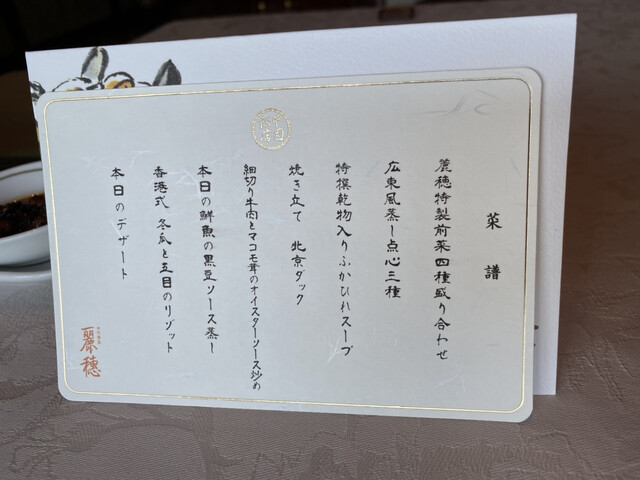 菜譜
麗穂特製前菜四種盛り合わせ
広東風蒸し点心三種
特撰乾物入りふかひれスープ
焼き立て 北京ダック
細切り牛肉とマコモ茸のオイスターソース炒め
本日の鮮魚の黒豆ソース蒸し
香港式 冬瓜と五目のリゾット
本日のデザート
麗穂